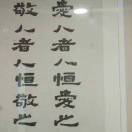 愛人者人恒愛之
敬人者人恒敬之